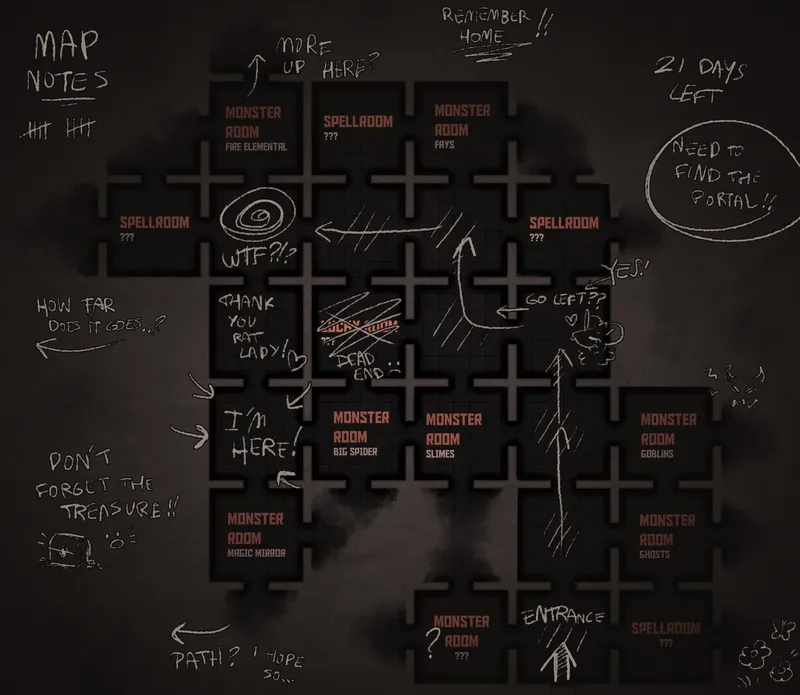 MAP
NOTES
MORE
UP HERE?
REMEMBER
HOME !!
21 DAYS
LEFT
NEED TO
FIND THE
PORTAL!!
MONSTER
ROOM
FIRE ELEMENTAL
SPELLROOM
???
MONSTER
ROOM
FAYS
SPELLROOM
???
WTF?!?
SPELLROOM
???
HOW FAR
DOES IT GOES..?
THANK
YOU
RAT
LADY!
LUCKY ROOM
???
DEAD
END
GO LEFT??
YES!
I'M
HERE!
MONSTER
ROOM
BIG SPIDER
MONSTER
ROOM
SLIMES
MONSTER
ROOM
GOBLINS
DON'T
FORGET THE
TREASURE!!
MONSTER
ROOM
MAGIC MIRROR
MONSTER
ROOM
GHOSTS
PATH? I HOPE
SO...
MONSTER
? ROOM
???
ENTRANCE
SPELLROOM
???